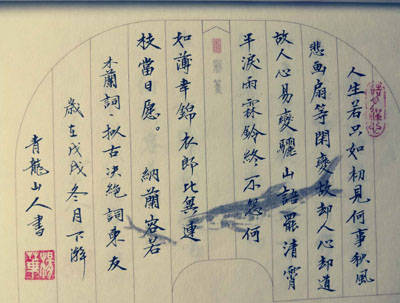 人生若只如初見何事秋風
悲画扇等閑變故却人心却道
故人心易變驪山語罷清宵
半淚雨霖鈴終不怨何
如薄幸錦衣郎比翼連
枝當日愿。納蘭容若
木蘭詞·拟古决絶詞柬友
歲在戊戌冬月下澣
青龍山人書